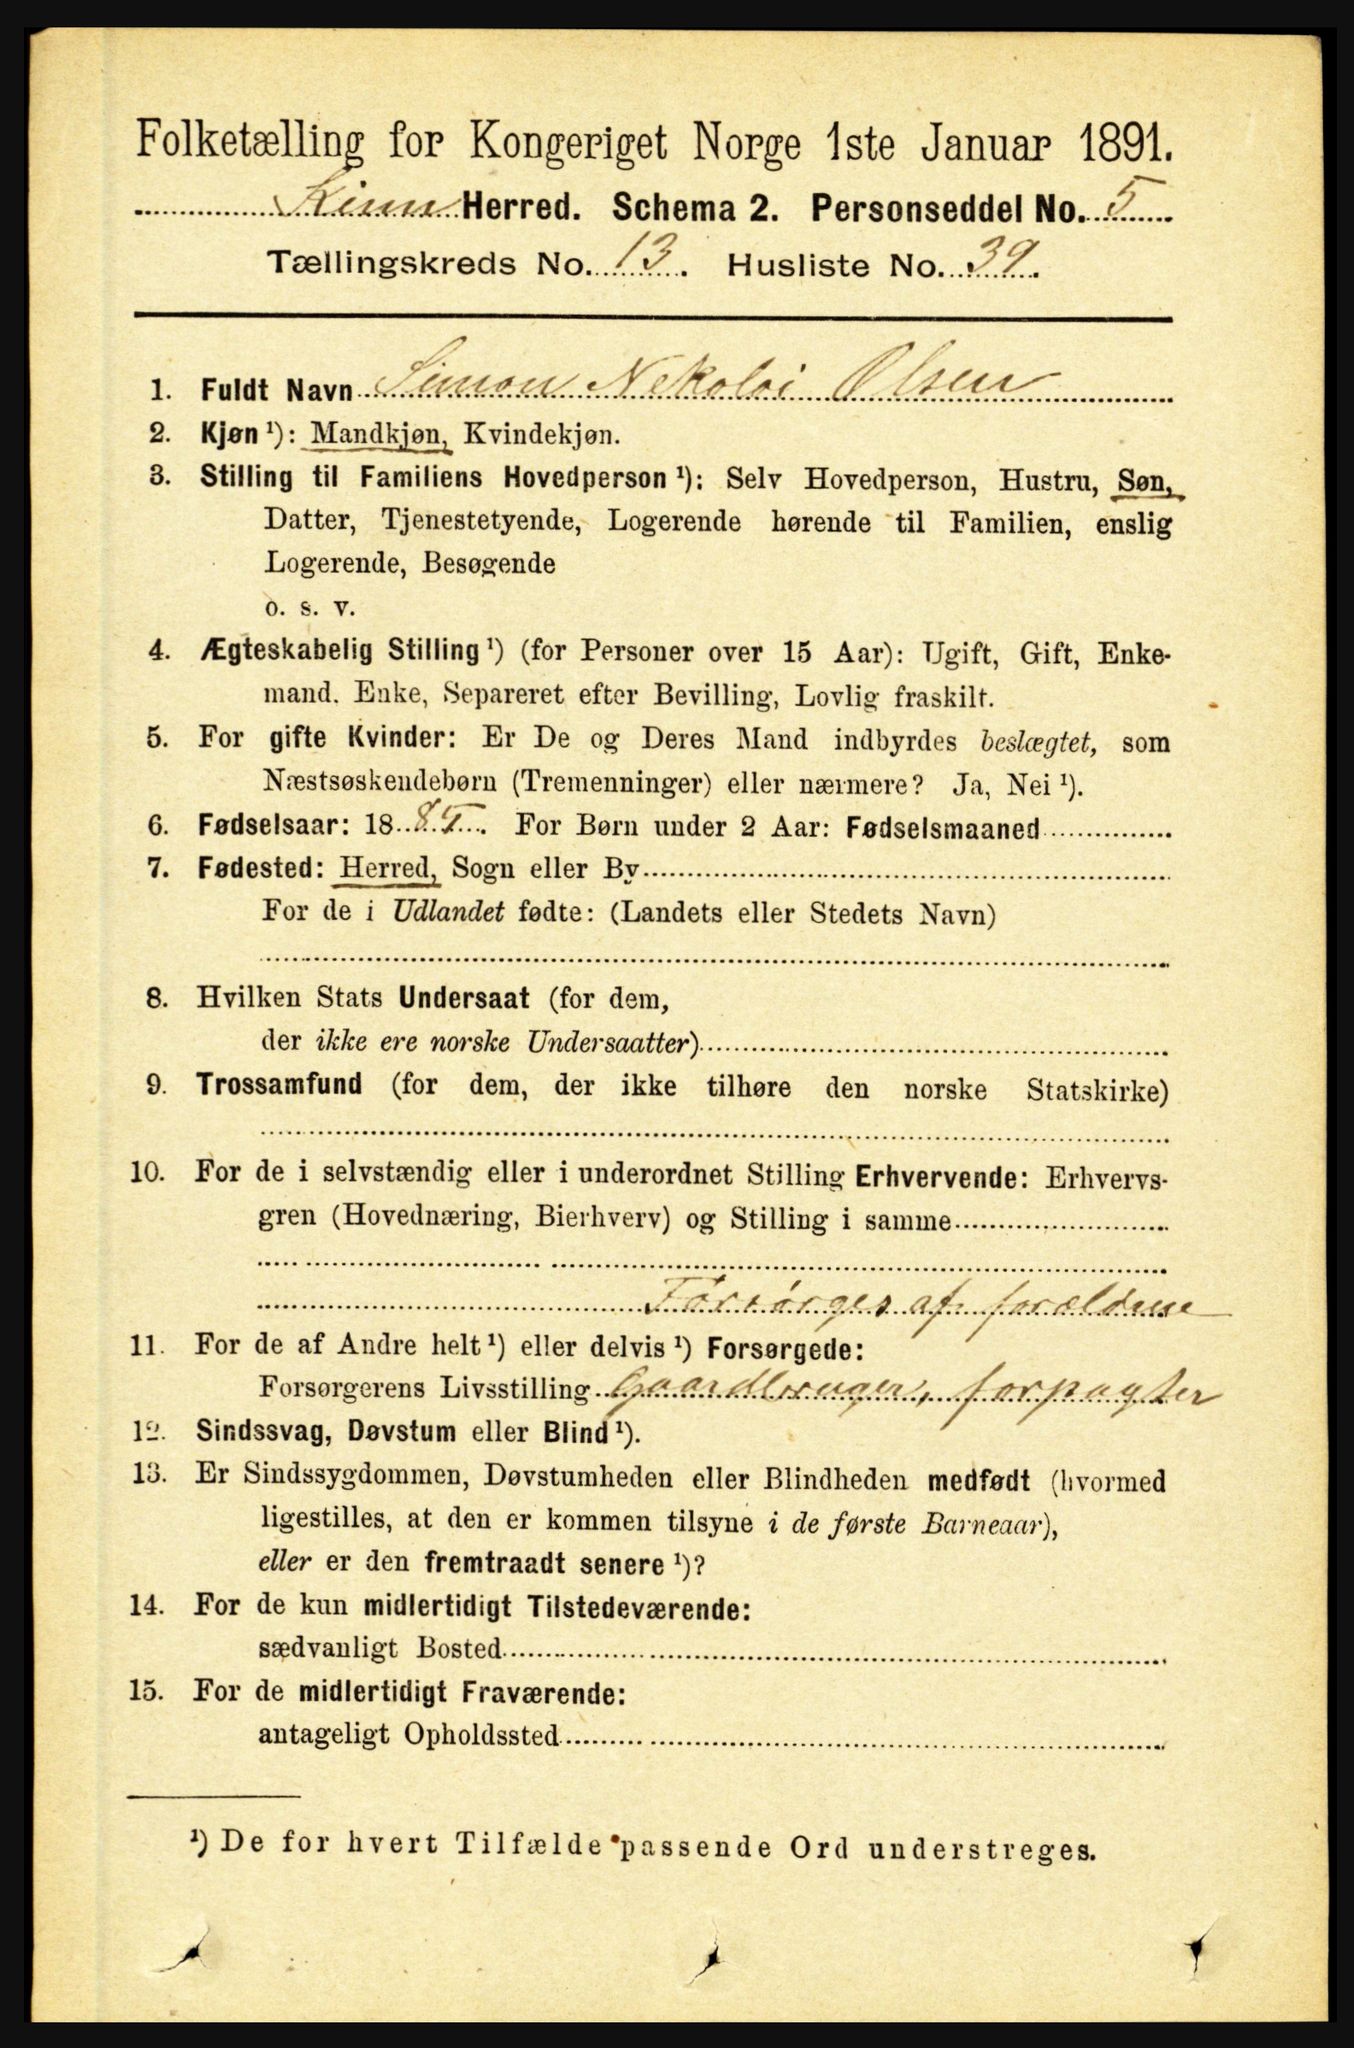 Folketælling for Kongeriget Norge 1ste Januar 1891.
Kinn Herred. Schema 2. Personseddel No. 5
Tællingskreds No. 13. Husliste No. 39.
1. Fuldt Navn Simon Nekolai Olsen
2. Kjøn ¹): Mandkjøn, Kvindekjøn.
3. Stilling til Familiens Hovedperson ¹): Selv Hovedperson, Hustru, Søn,
Datter, Tjenestetyende, Logerende hørende til Familien, enslig
Logerende, Besøgende
o. s. v.
4. Ægteskabelig Stilling ¹) (for Personer over 15 Aar): Ugift, Gift, Enke-
mand. Enke, Separeret efter Bevilling, Lovlig fraskilt.
5. For gifte Kvinder: Er De og Deres Mand indbyrdes beslægtet, som
Næstsøskendebørn (Tremenninger) eller nærmere? Ja, Nei ¹).
6. Fødselsaar: 1885. For Børn under 2 Aar: Fødselsmaaned
7. Fødested: Herred, Sogn eller By
For de i Udlandet fødte: (Landets eller Stedets Navn)
8. Hvilken Stats Undersaat (for dem,
der ikke ere norske Undersaatter)
9. Trossamfund (for dem, der ikke tilhøre den norske Statskirke)
10. For de i selvstændig eller i underordnet Stilling Erhvervende: Erhvervs-
gren (Hovednæring, Bierhverv) og Stilling i samme
Forsørges af forældrene
11. For de af Andre helt ¹) eller delvis ¹) Forsørgede:
Forsørgerens Livsstilling Gaardbruger, forpagter
12. Sindssvag, Døvstum eller Blind ¹).
13. Er Sindssygdommen, Døvstumheden eller Blindheden medfødt (hvormed
ligestilles, at den er kommen tilsyne i de første Barneaar),
eller er den fremtraadt senere ¹)?
14. For de kun midlertidigt Tilstedeværende:
sædvanligt Bosted
15. For de midlertidigt Fraværende:
antageligt Opholdssted
¹) De for hvert Tilfælde passende Ord understreges.